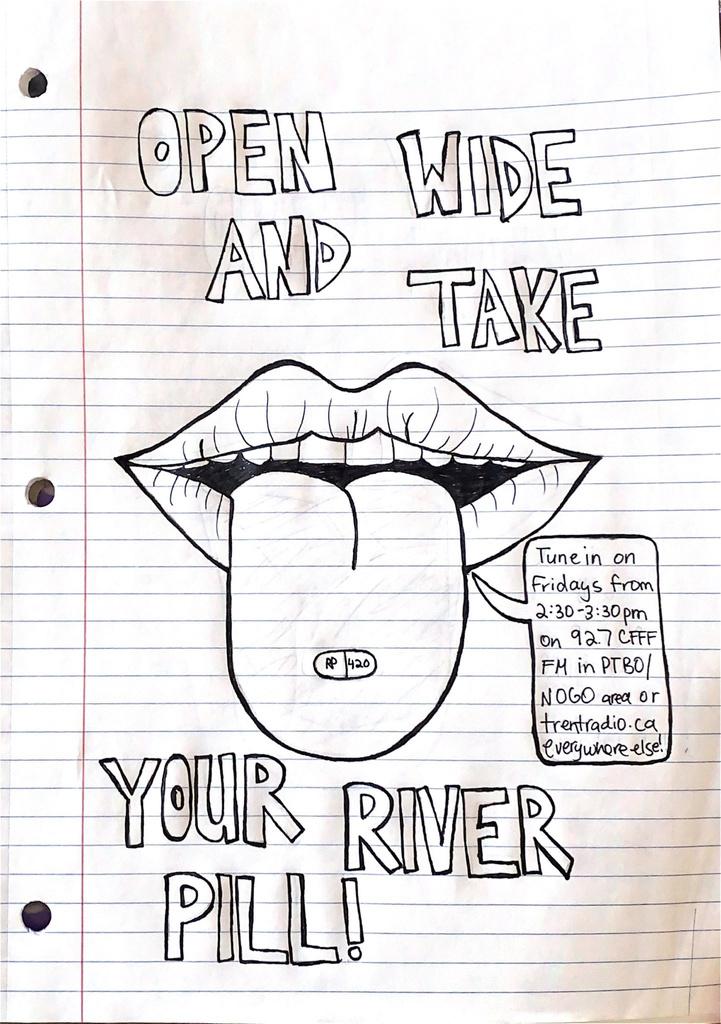 OPEN WIDE
AND TAKE
Tune in on
Fridays from
2:30-3:30pm
on 92.7 CFFF
FM in PTBO/
NOGO area or
trentradio.ca
everywhere else!
RP 420
YOUR RIVER
PILL!